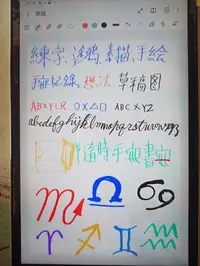 練字、塗鴉、素描、手繪
手寫記錄、想法、草稿图
ABXYLR OX△□ ABCXYZ
abcdefghijklmnopqrstuvwxyz
隨時手寫書寫
♏ ♎ ♋
♈ ♐ ♊ ♒